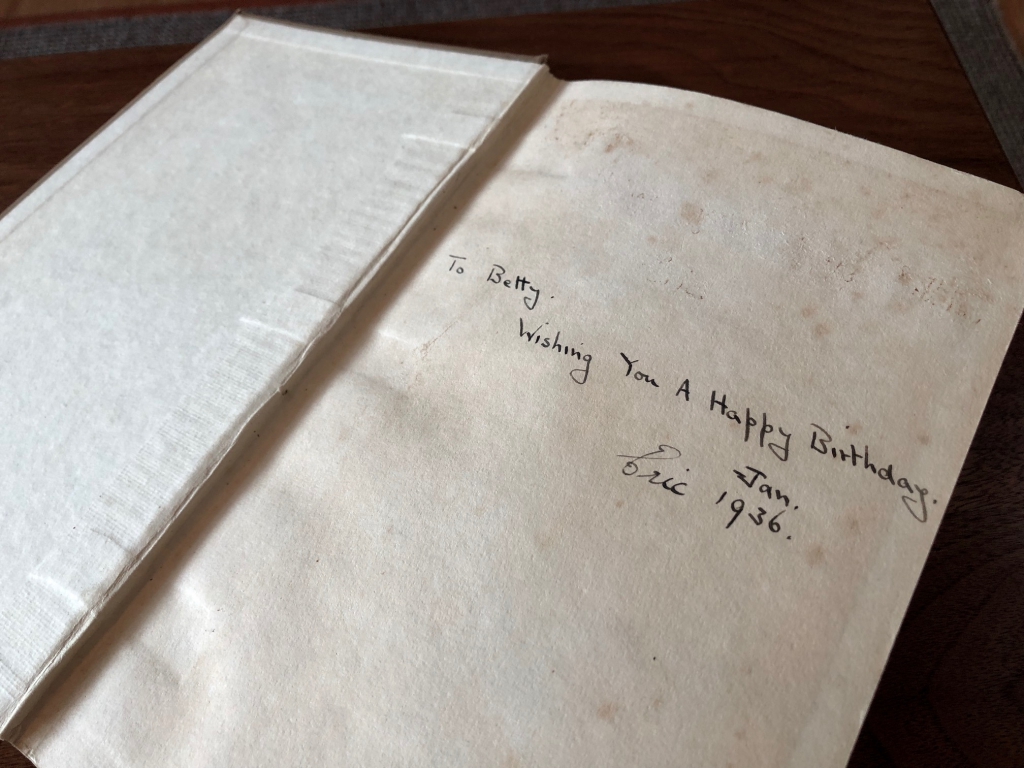 To Betty.
Wishing You A Happy Birthday.
Eric Jan.
1936.